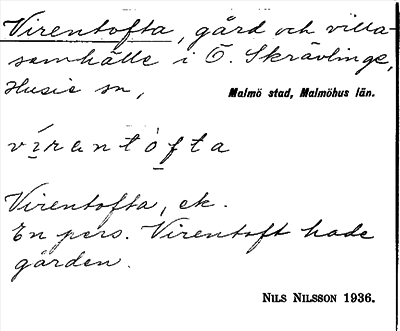 Virentofta, gård och villa-
samhälle i Ö. Skrävlinge,
Husie sn,
Malmö stad, Malmöhus län.
v í r ə n t ò f t a
Virentofta, ek.
En pers. Virentoft hade
gården.
NILS NILSSON 1936.